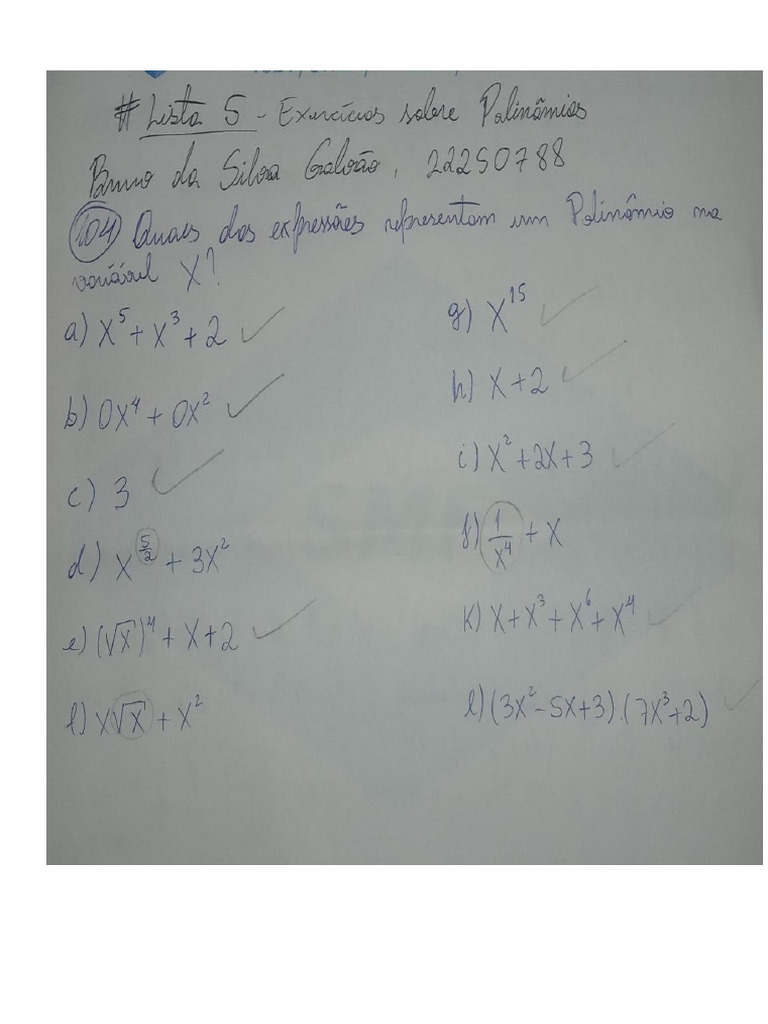 # Lista 5 - Exercícios sobre Polinômios
Bruno da Silva Galvão, 22250788
104 Quais das expressões representam um Polinômio na
variável X?
a) X⁵ + X³ + 2 ✓
b) 0X⁴ + 0X² ✓
c) 3 ✓
d) X^(5/2) + 3X²
e) (√X)⁴ + X + 2 ✓
f) X√X + X²
g) X¹⁵ ✓
h) X + 2 ✓
i) X² + 2X + 3 ✓
j) 1/X⁴ + X
K) X + X³ + X⁶ + X⁴ ✓
l) (3X² - 5X + 3).(7X³ + 2) ✓